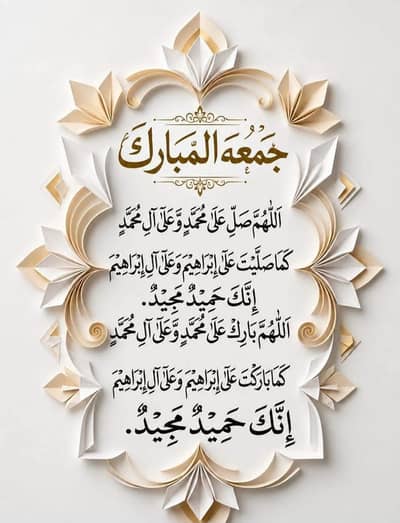 جَمْعَه المُبَارَك
اَللّٰهُمَّ صَلِّ عَلٰى مُحَمَّدٍ وَّعَلٰٓى اٰلِ مُحَمَّدٍ
كَمَا صَلَّيْتَ عَلٰٓى اِبْرَاهِيْمَ وَعَلٰٓى اٰلِ اِبْرَاهِيْمَ
إِنَّكَ حَمِيْدٌ مَجِيْدٌ.
اَللّٰهُمَّ بَارِكْ عَلٰى مُحَمَّدٍ وَّعَلٰٓى اٰلِ مُحَمَّدٍ
كَمَا بَارَكْتَ عَلٰٓى اِبْرَاهِيْمَ وَعَلٰٓى اٰلِ اِبْرَاهِيْمَ
إِنَّكَ حَمِيْدٌ مَجِيْدٌ.